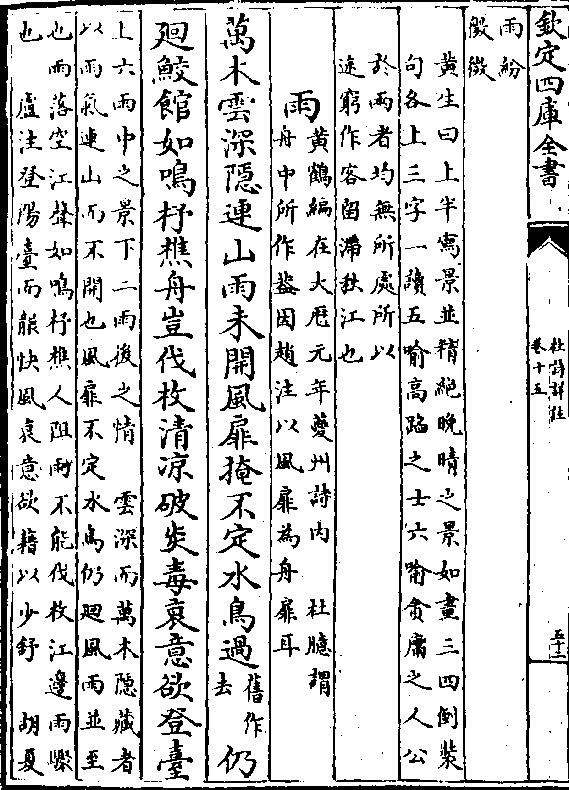 欽定四庫全書
杜詩詳註
卷十五
五十二
雨紛
微
黄生曰上半寫景並精絶晚晴之景如畫三四倒裝
句各上三字一讀五喻高蹈之士六喻貪庸之人公
於兩者均無所處所以
速窮作客留滯秋江也
雨
黄鶴編在大厯元年夔州詩内　杜臆謂
舟中所作蓋因趙注以風扉為舟扉耳
萬木雲深隠連山雨未開風扉掩不定水鳥過舊作去仍
廻鮫館如鳴杼樵舟豈伐枚清凉破炎毒衰意欲登臺
上六雨中之景下二雨後之情　雲深而萬木隠藏者
以雨氣連山而不開也風扉不定水鳥仍廻風雨並至
也雨落空江聲如鳴杼樵人阻雨不能伐枚江邊雨驟
也　盧注登陽臺而能快風衰意欲藉以少舒　胡夏